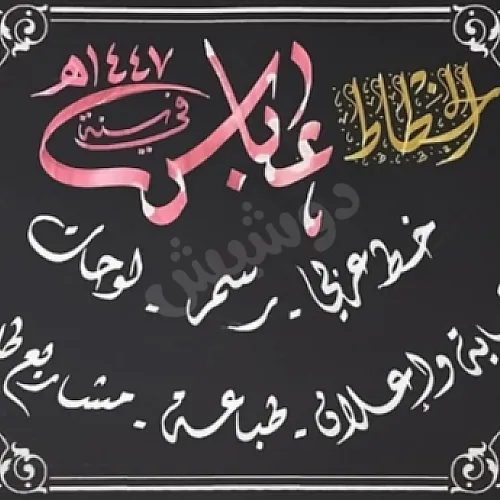 الخطاط
عباس
في سنة
١٤٤٧هـ
خط عربي - رسم - لوحات
وإعلان - طباعة - مشاريع
دوشيش